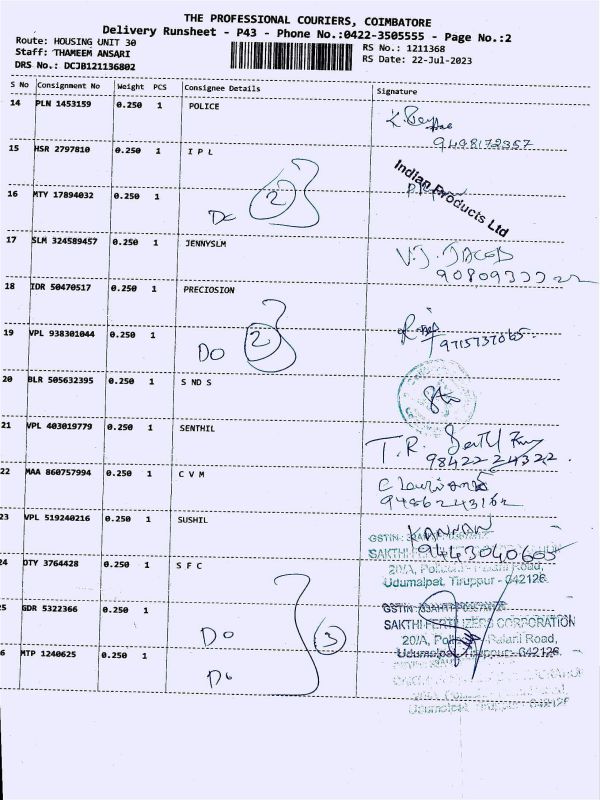 THE PROFESSIONAL COURIERS, COIMBATORE
Delivery Runsheet - P43 - Phone No.:0422-3505555 - Page No.:2
Route: HOUSING UNIT 30 RS No.: 1211368
Staff: THAMEEM ANSARI RS Date: 22-Jul-2023
DRS No.: DCJB121136802
S No Consignment No Weight PCS Consignee Details Signature
14 PLN 1453159 0.250 1 POLICE
9498172357
15 HSR 2797810 0.250 1 I P L
Indian Products Ltd
16 MTY 17894032 0.250 1
Do 2
17 SLM 324589457 0.250 1 JENNYSLM V.J. JACOB
18 IDR 50470517 0.250 1 PRECIOSION
19 VPL 938301044 0.250 1
DO 2 9715737065
20 BLR 505632395 0.250 1 S ND S
21 VPL 403019779 0.250 1 SENTHIL T.R.
98422 24322
22 MAA 860757994 0.250 1 C V M
9486243162
23 VPL 519240216 0.250 1 SUSHIL KANNAN
9443040605
24 OTY 3764428 0.250 1 S F C
20/A, Palani Road,
Udumalpet, Tiruppur - 642126.
25 GDR 5322366 0.250 1
Do 3
SAKTHI FERTILIZERS CORPORATION
20/A, Palani Road,
Udumalpet, Tiruppur - 642126.
6 MTP 1240625 0.250 1
Do